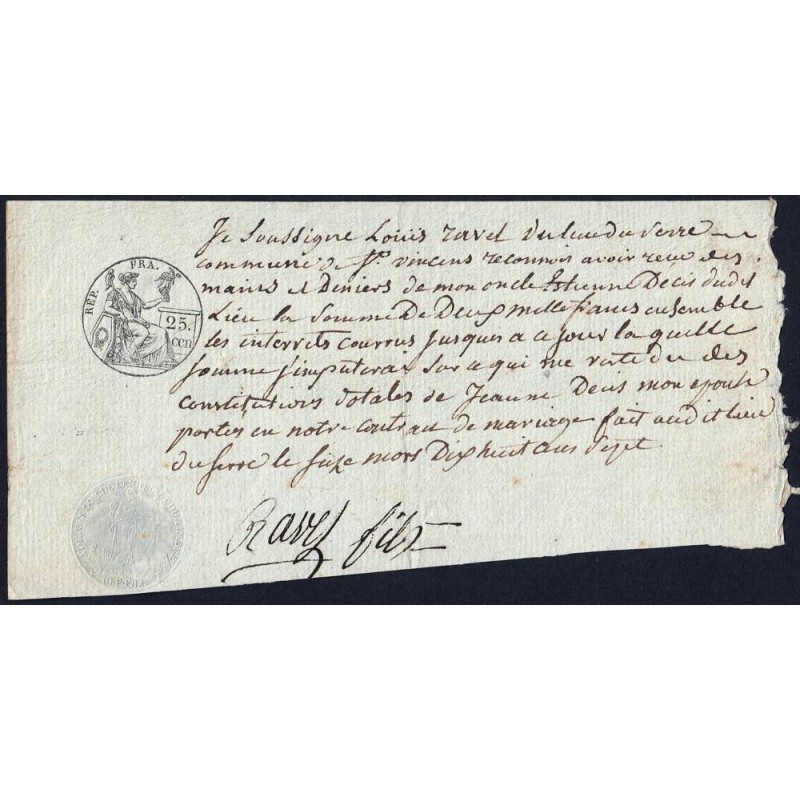 RÉP. FRA.
25.
cen
Je Soussigne Loüis ravel du lieu du serre
commune St vincens reconnois avoir reçu des
mains et Deniers de mon oncle Estienne Decis dudit
Lieu la Somme De Deux mille francs ensemble
les interrets courrus jusques a ce jour la quelle
somme j'imputerai Sur ce qui me reste du des
constitutions dotales de Jeanne Decis mon epouse
portés en notre contrat de mariage fait audit lieu
du serre le seize mars Dix huit cens sept
Ravel fils
REP. FRA.